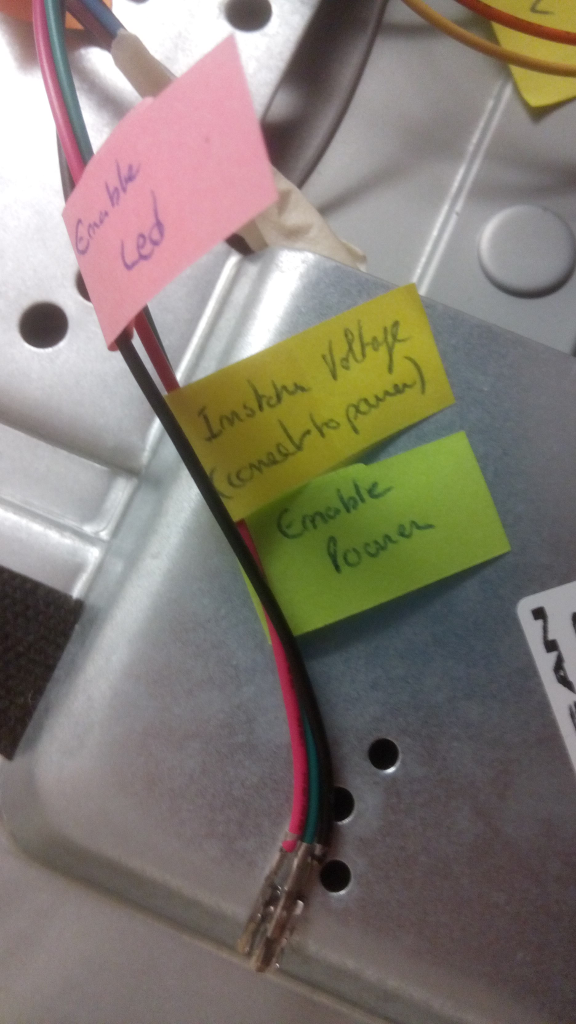 2
Enable
Led
Voltage
(conect to power)
Enable
Power